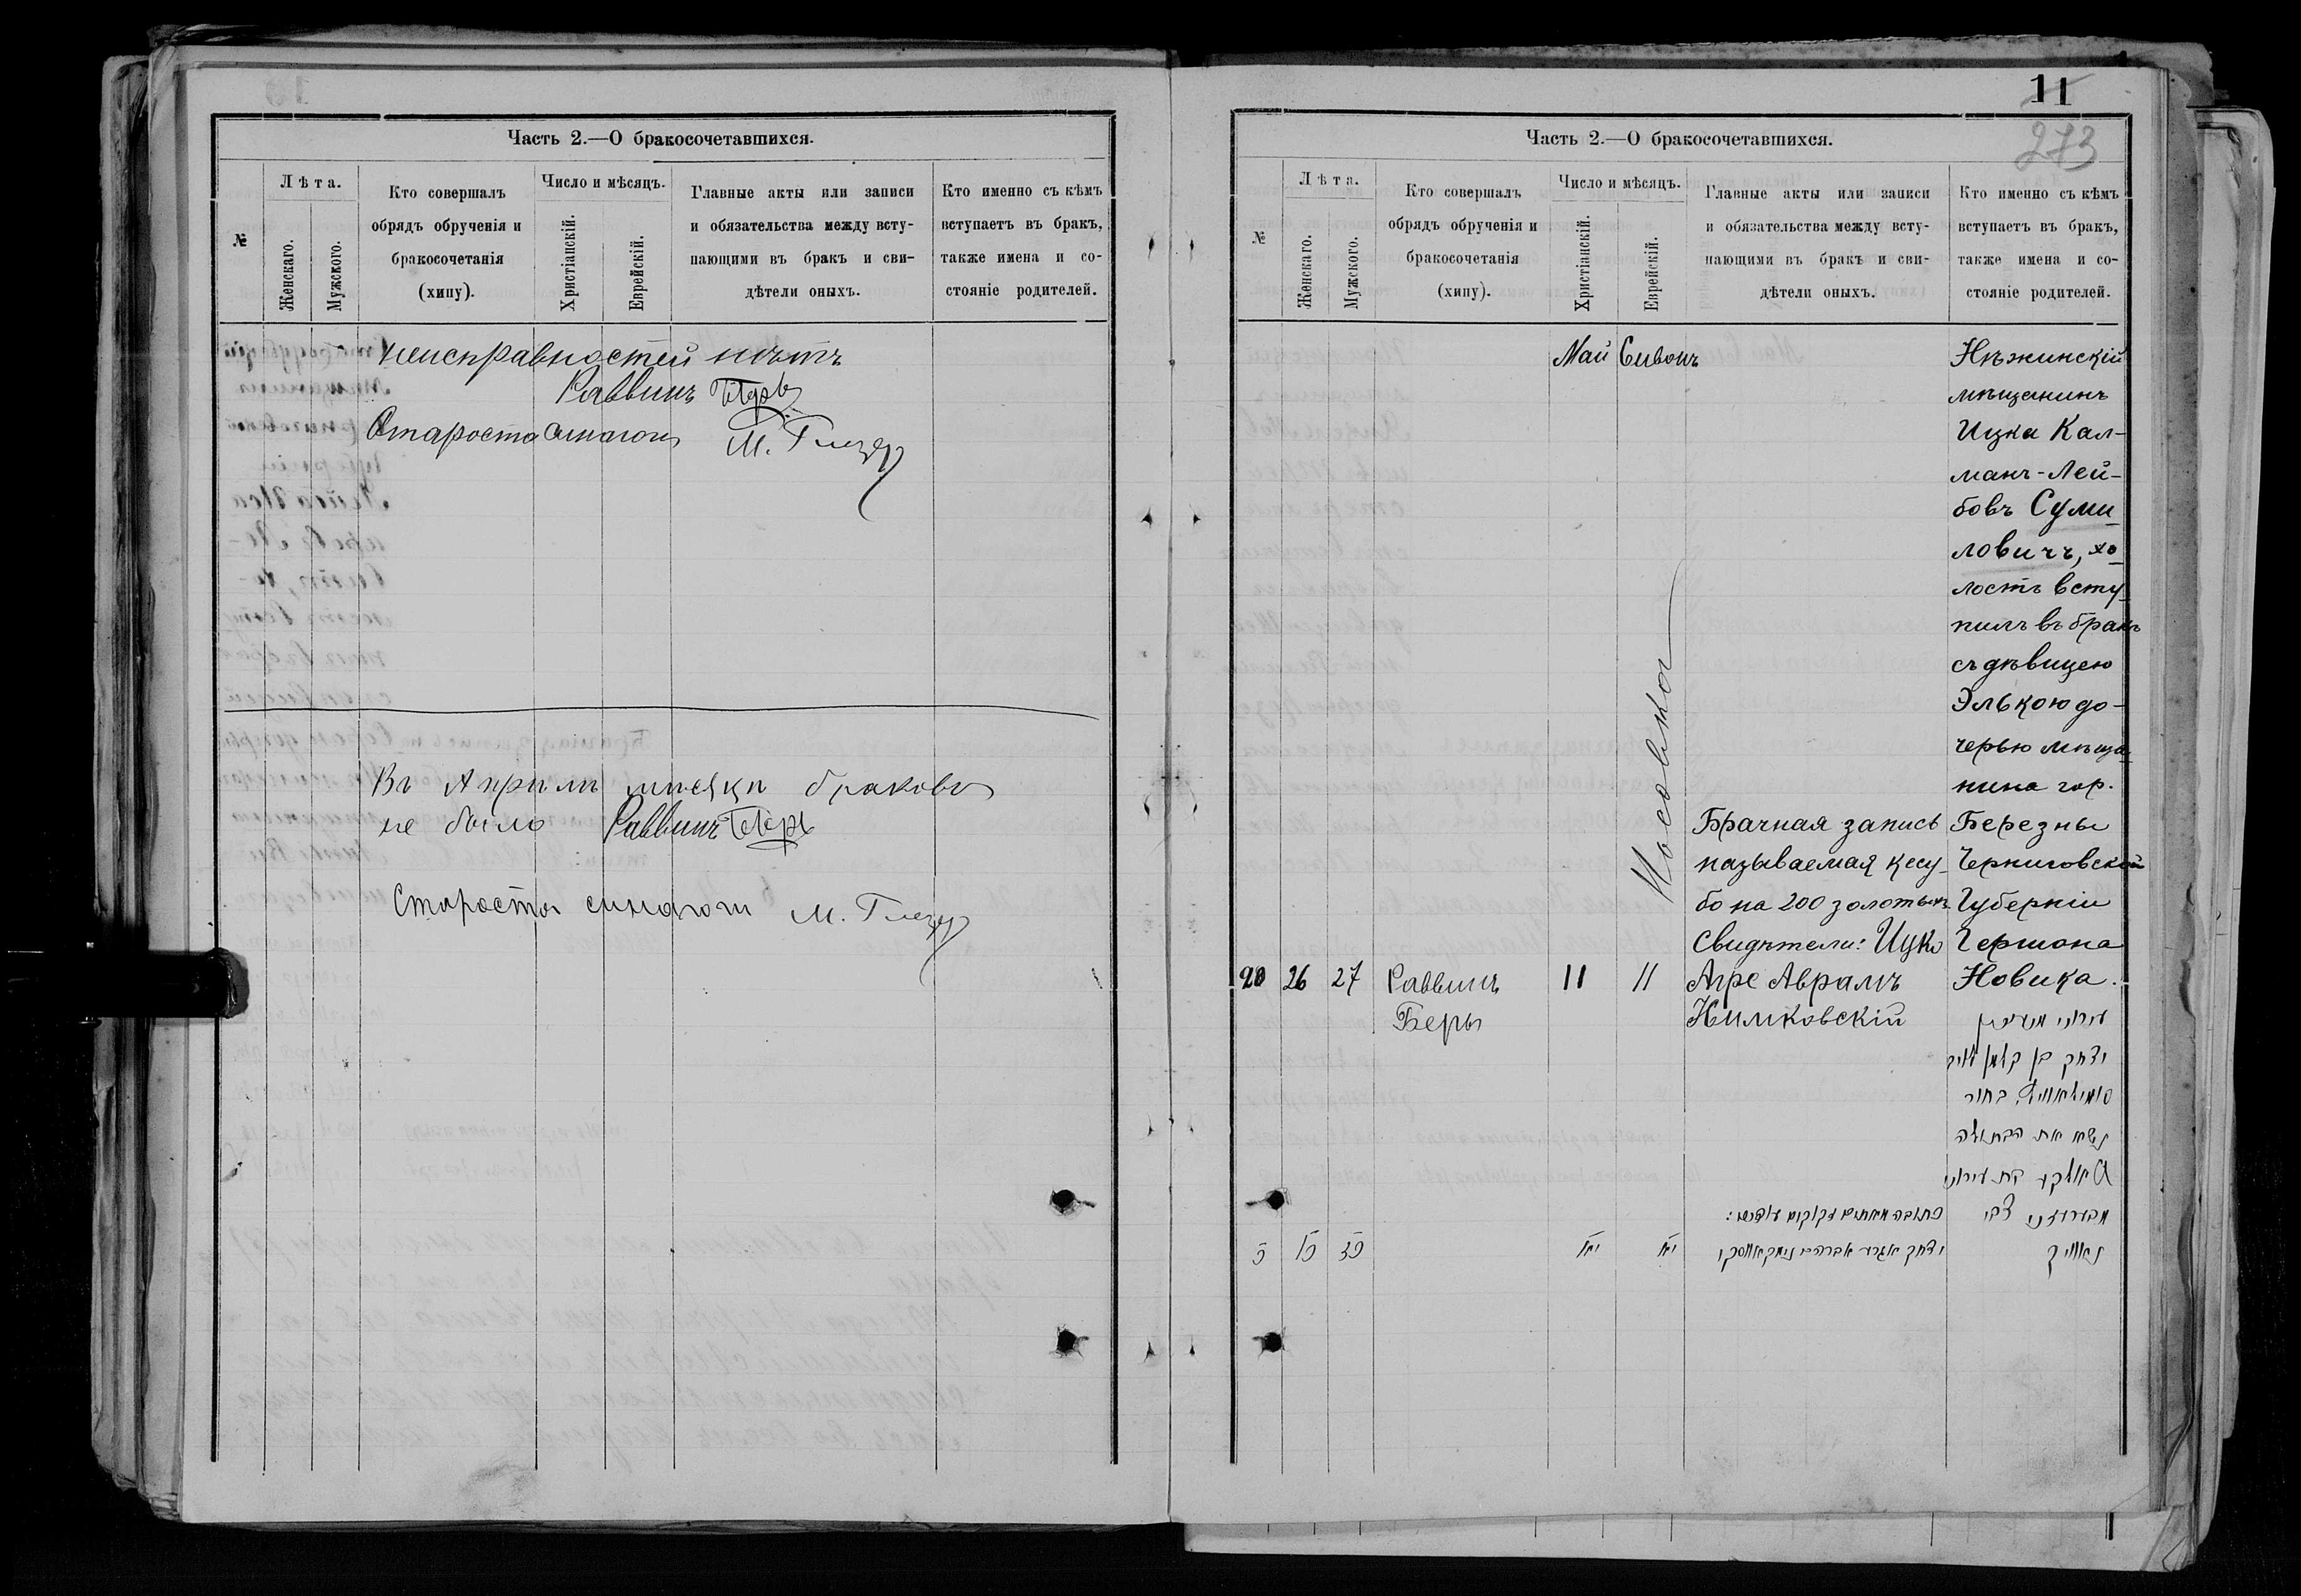 Часть 2.—О бракосочетавшихся.
№
Лѣта.
Женскаго.
Мужского.
Кто совершалъ
обрядъ обрученія и
бракосочетанія
(хипу).
Число и мѣсяцъ.
Христіанскій.
Еврейскій.
Главные акты или записи
и обязательства между всту-
пающими въ бракъ и сви-
дѣтели оныхъ.
Кто именно съ кѣмъ
вступаетъ въ бракъ,
также имена и со-
стояніе родителей.
неисправностей нѣтъ
Раввинъ
Староста синагоги М. Глезер
Въ Апрѣлѣ мѣсяцѣ браковъ
не было Раввинъ
Староста синагоги М. Глезер
11
273
Часть 2.—О бракосочетавшихся.
№
Лѣта.
Женскаго.
Мужского.
Кто совершалъ
обрядъ обрученія и
бракосочетанія
(хипу).
Число и мѣсяцъ.
Христіанскій.
Еврейскій.
Главные акты или записи
и обязательства между всту-
пающими въ бракъ и сви-
дѣтели оныхъ.
Кто именно съ кѣмъ
вступаетъ въ бракъ,
также имена и со-
стояніе родителей.
Май Сивонъ
Носовка
20 26 27 Раввинъ 11 11
Беръ
Брачная запись
называемая кесу-
бо на 200 золотыхъ
Свидѣтели: Ицко
Агре Аврамъ
Нимковскій
Нѣжинскій
мѣщанинъ
Ицка Кал-
манъ-Лей-
бовъ Суми-
ловичъ, хо-
лостъ всту-
пилъ въ бракъ
съ дѣвицею
Элькою до-
черью мѣща-
нина гор.
Березны
Черниговской
Губерніи
Гершона
Новика.
יצחק בן קלמן לייב
בחור
נשא את הבתולה
צבי
נאוויק
כתובה מאתים זקוקים
יצחק אגרע אברהם נימקאווסקי
יא יא